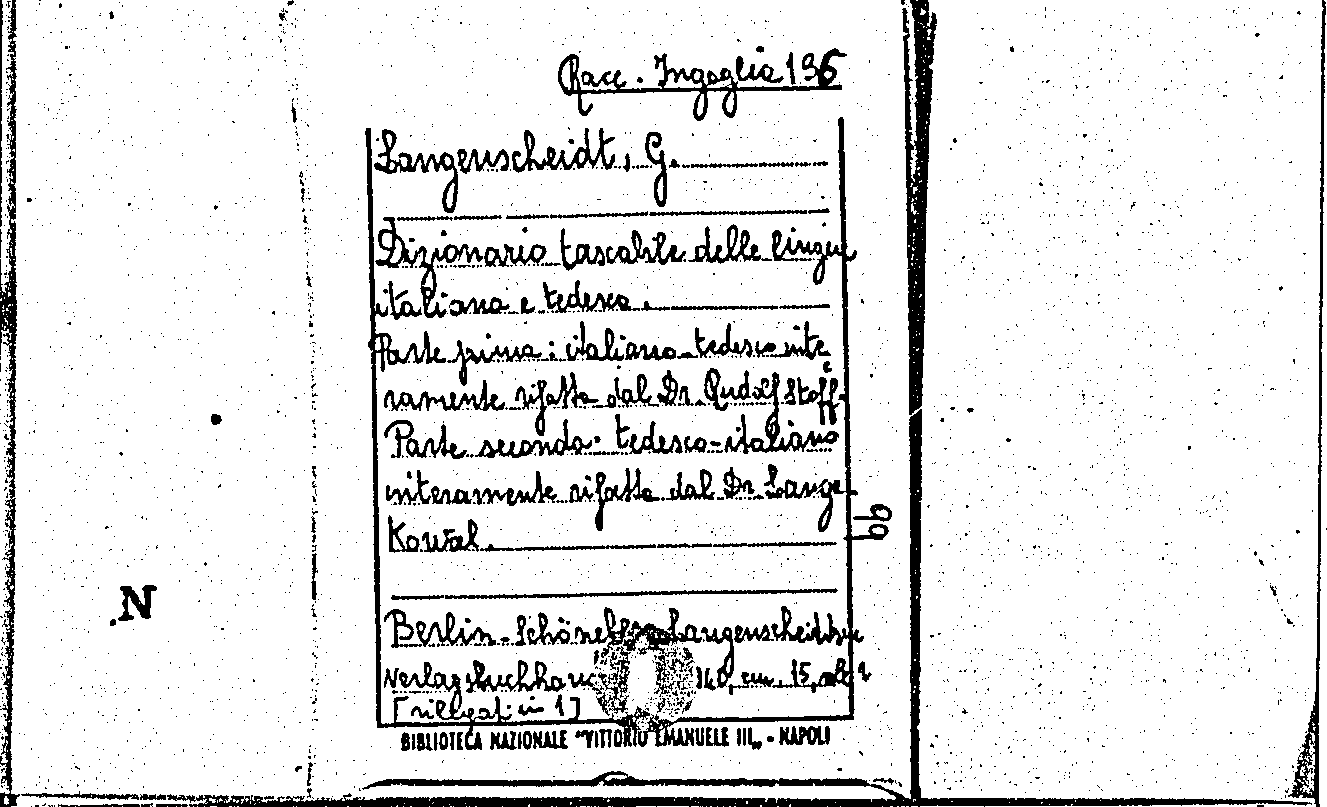 Racc. Ingoglia 196
Langenscheidt, G.
Dizionario tascabile delle lingue
italiana e tedesca.
Parte prima: italiano-tedesco inte
ramente rifatta dal Dr. Rudolf Stoff-
Parte seconda: tedesco-italiano
interamente rifatta dal Dr. Lange-
Kowal.
bb
.N
Berlin-Schöneberg Langenscheidtsche
Verlagsbuchhand 1940, cm. 15, voll 2
[rillegat. in 1]
BIBLIOTECA NAZIONALE "VITTORIO EMANUELE III„ - NAPOLI